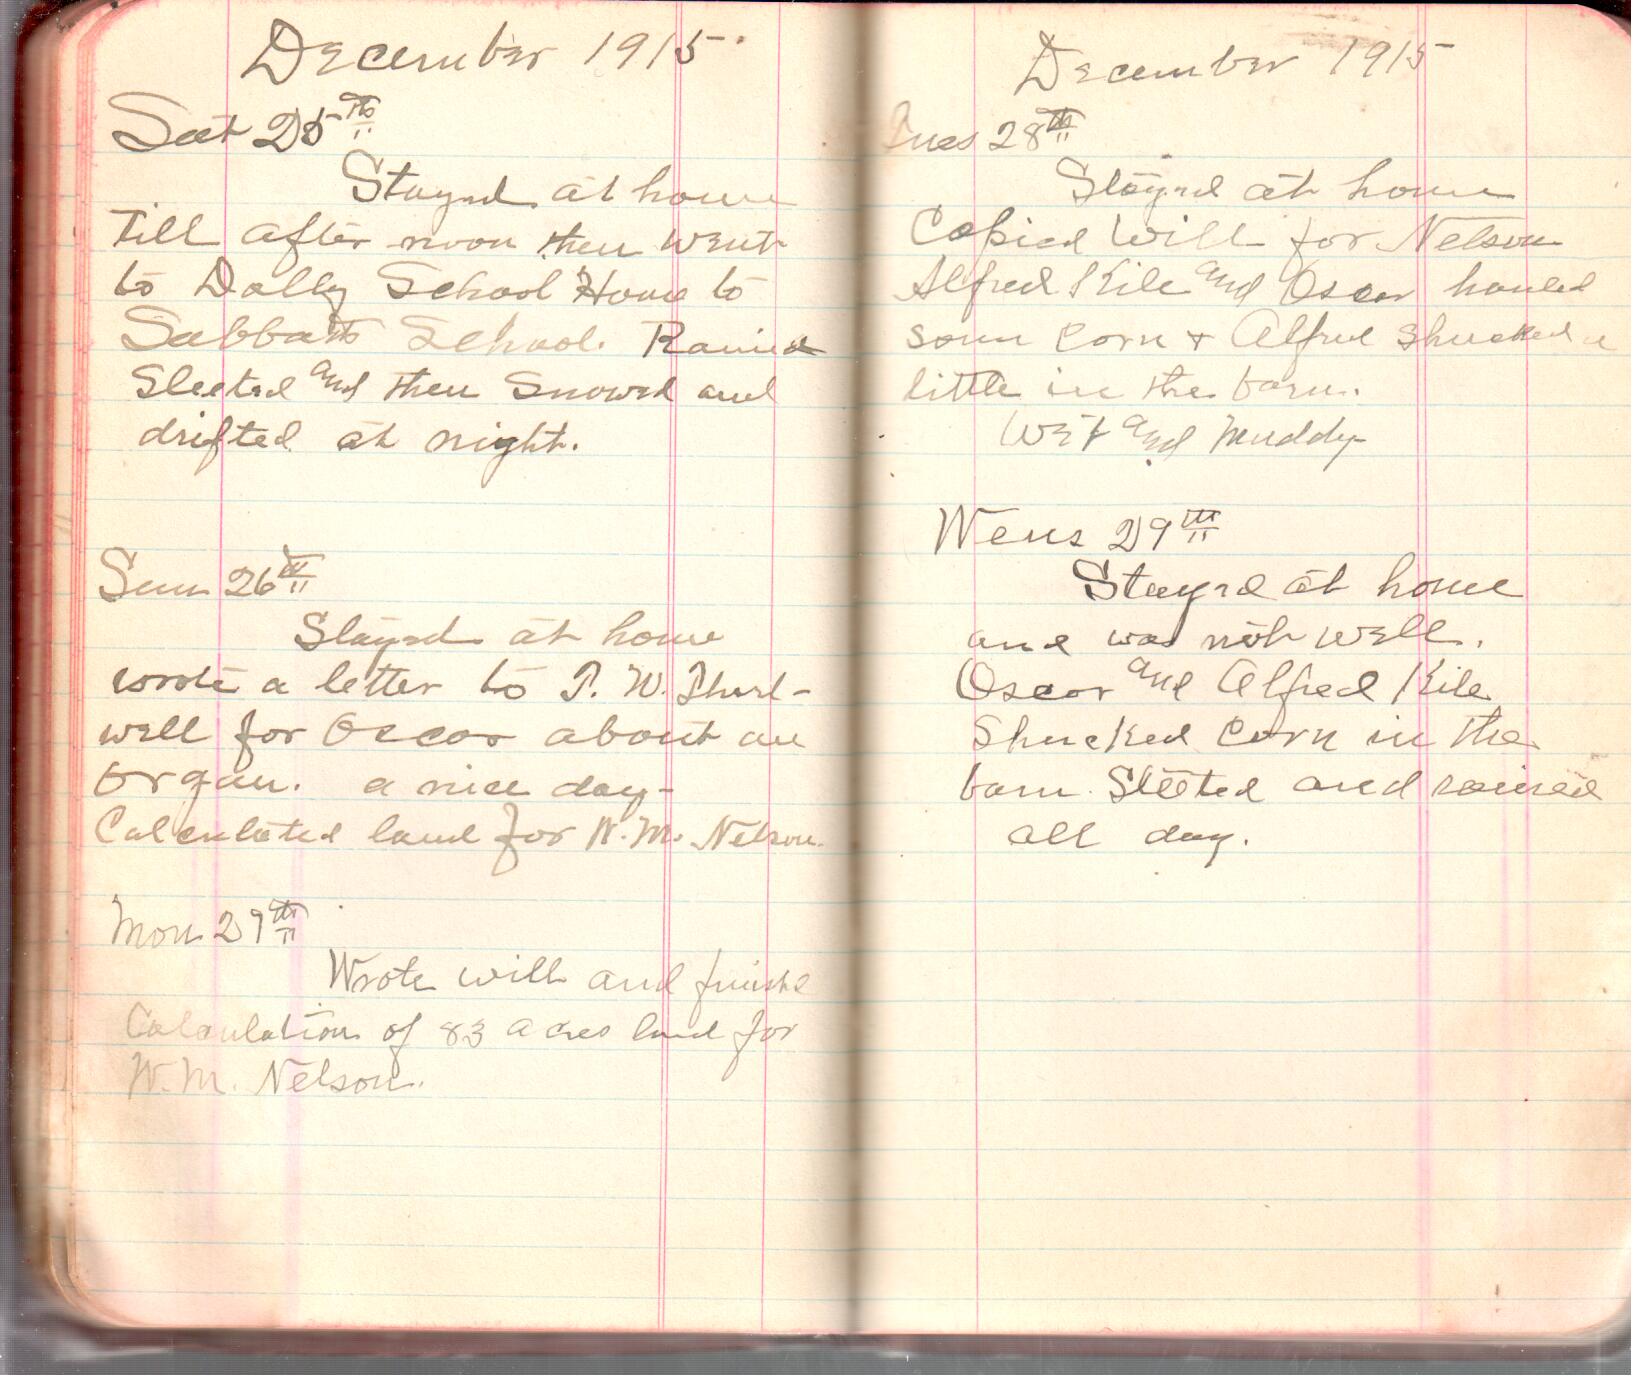 December 1915
Sat 25th
Stayed at home
till after noon then went
to Dolly School House to
Sabbath School. Rained
Sleeted and then Snowed and
drifted at night.
Sun 26th
Stayed at home
wrote a letter to T. W. Thirl-
well for Oscar about an
organ. a nice day-
Calculated land for W. M. Nelson.
Mon 27th
Wrote will and finishd
Calculation of 83 acres land for
W. M. Nelson.
December 1915
Tues 28th
Stayed at home
Copied Will for Nelson
Alfred Kile and Oscar hauled
som corn + Alfred shucked a
little in the barn.
Wet and muddy
Wens 29th
Stayed at home
and was not well.
Oscar and Alfred Kile
Shucked Corn in the
barn. Sleeted and rained
all day.